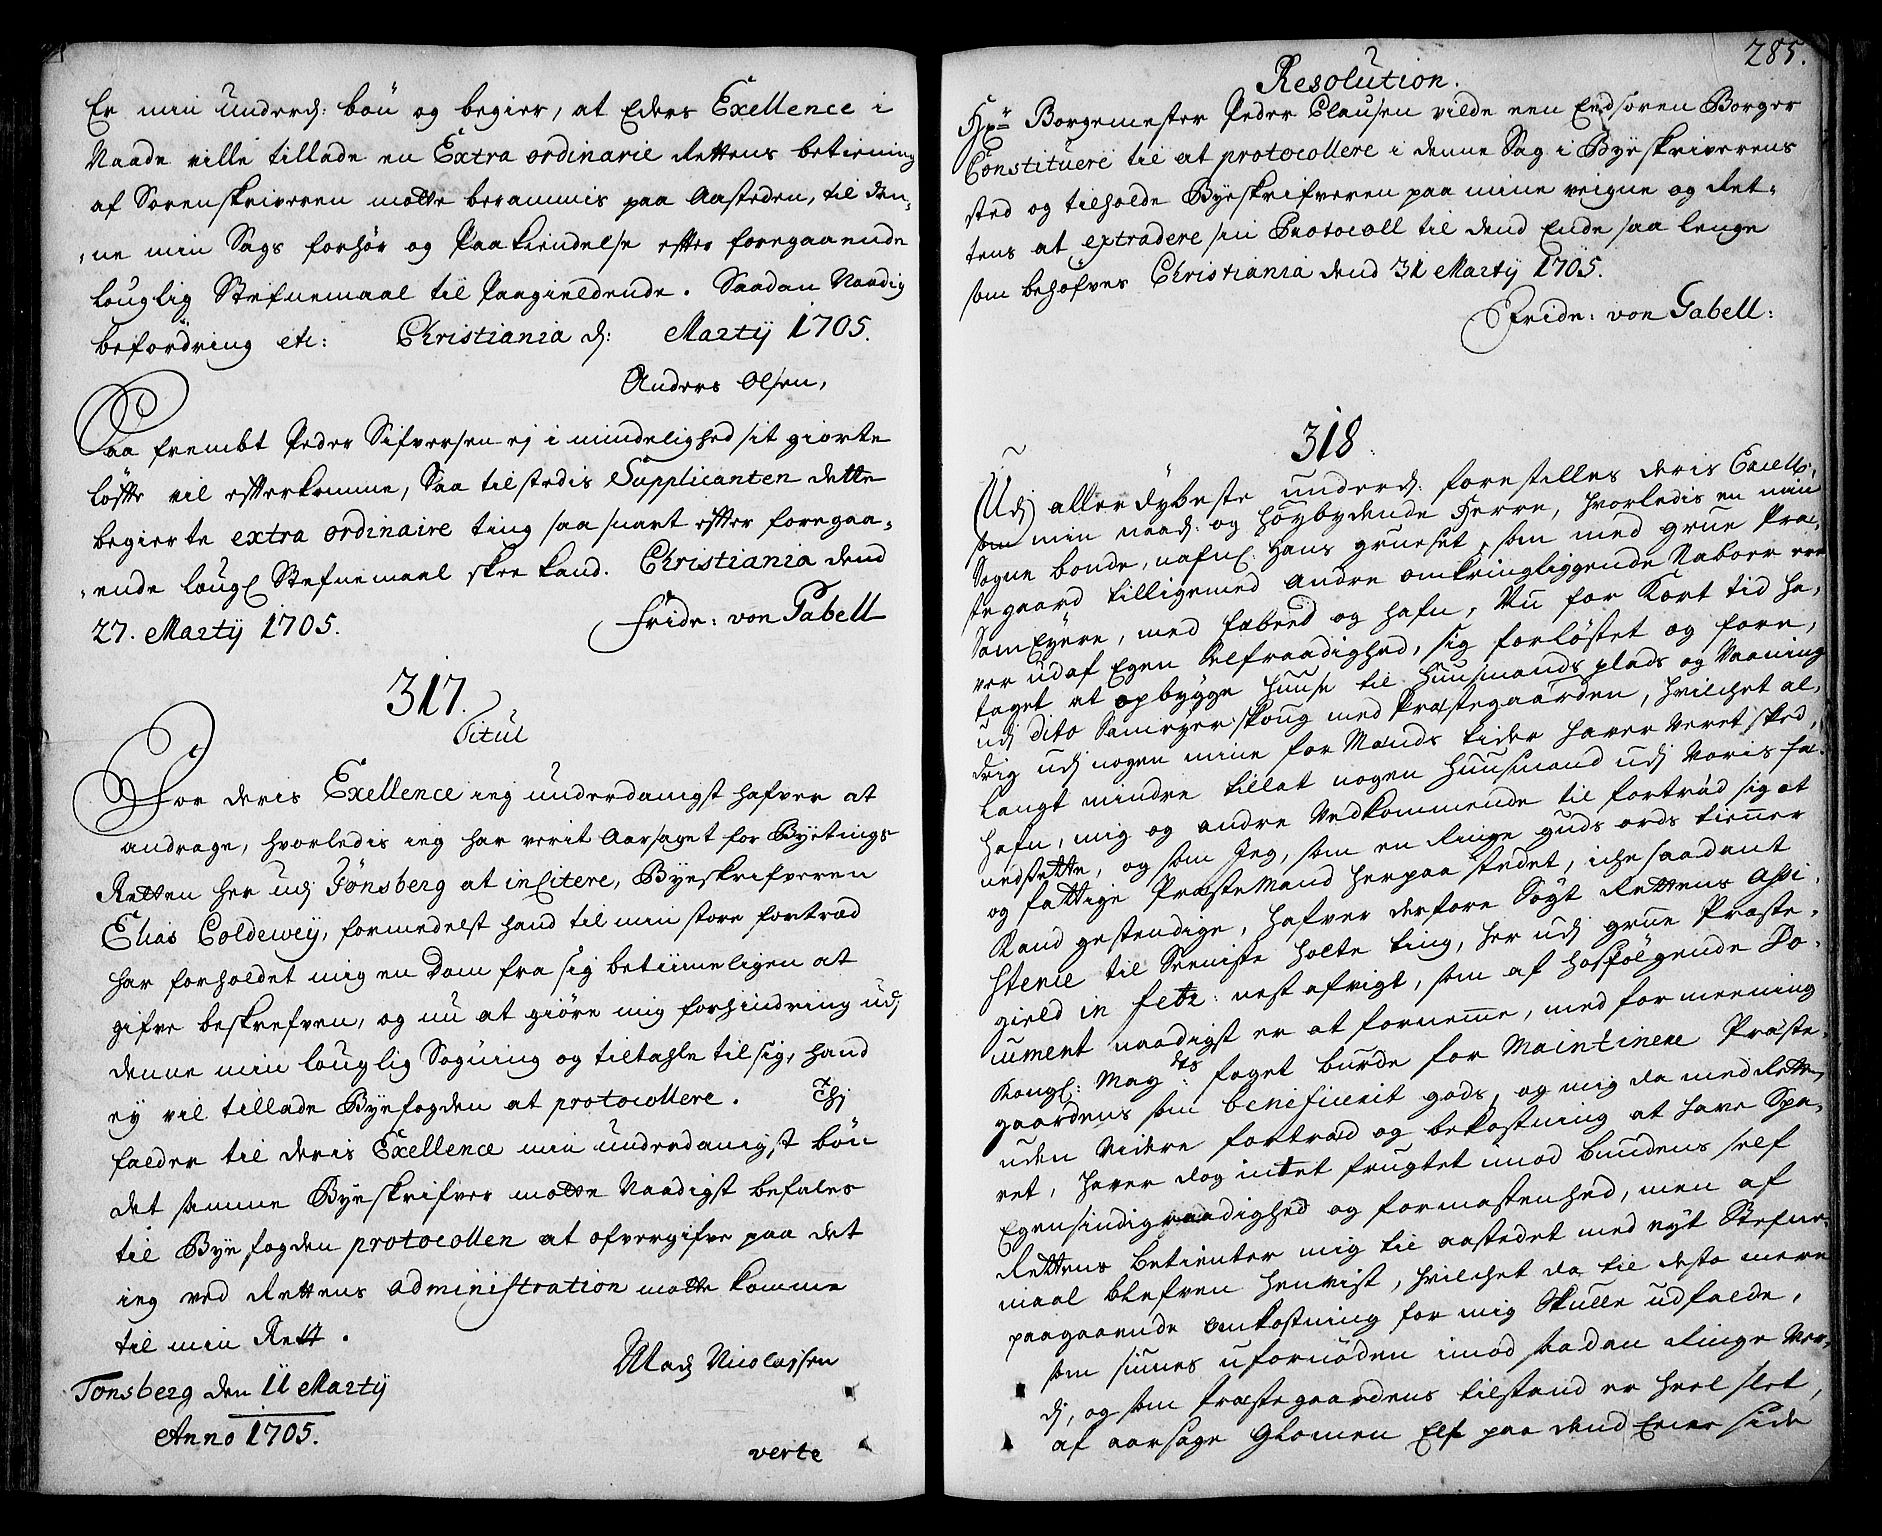 Er min underd: bön og begier, at Eders Exellence i
Naade ville tillade en Extra ordinarie Rettens betiening
af Sorenskriveren motte berammis paa Aasteden, til den,,
,,ne min Sags forhör og Paakiendelse efter foregaaende
louglig Stefnemaal til Paagieldende. Saadan Naadig
befordring etc: Christiania d: Martij 1705.
Anders Olsen,
Saa frembt Peder Sifversen ej i mindelighed sit giorte
löfte vil efterkomme, Saa tilstedis Supplicanten dette
begierte extra ordinaire ting saa snart efter foregaa,,
,,ende lougl Stefnemaal skee kand. Christiania dend
27. Martij 1705. Fride: von Gabell
317.
Titul
For deris Exellence ieg underdanigst hafver at
andrage, hvorledis ieg har verit Aarsaget for Byetings
Retten her udj Tönsberg at incitere, Byeskrifveren
Elias Coldewey, formedelst hand til min store fortræd
har forholdet mig en Dom fra sig betimeligen at
gifve beskrefven, og nu at giöre mig forhindring udj
denne min louglig Sögning og tiltahle til sig, hand
ey vil tillade Byefogden at protocollere. Thj
falder til deris Exellence min underdanigst bön
det samme Byeskrifver motte Naadigst befales
til Byefogden protocollen at ofvergifve paa det
ieg ved Rettens administration motte komme
til min Rett.
Mads Nicolassen
Tonsberg den 11 Martij
Anno 1705.
verte
285.
Resolution.
Hr Borgemester Peder Clausen vilde een Eedsoren Borger
Constituere til at protocollere i denne Sag i Byeskriverens
sted og tilholde Byeskrifveren paa mine veigne og Ret,,
tens at extradere sin Protocoll til dend Ende saa lenge
som behöfves Christiania dend 31 Martij 1705.
Fride: von Gabell:
318.
Udj allerdybeste underd: forestilles deris Excell:
som min naad: og höybydende Herre, hvorledis en min
Sogne bonde, nafnl: Hans grueset, som med grue Præ,
stegaard tilligemed andre omkringliggende Naboer ere
Sameyere, med fæbeed og hafn, Nu for Kort tid ha,
ver udaf Egen Selfraadighed, sig forlöstet og fore,
taget at opbygge Huuse til Huusmands plads og Vaaning
udj dito Sameyer skoug med Præstegaarden, hvilchet al,
drig udj nogen mine for Mands tider haver veret skeed,
langt mindre tillat nogen Huusmand udj Voris fæ,
hafn, mig og andre Vedkommende til fortræd sig at
nedsette, og som Jeg, som en Ringe guds ords tiener
og fattige Præste Mand herpaa stedet, iche saadant
Kand gestendige, hafver derfore Sögt Rettens Assi,
stence til Seeniste holte ting, her udj grue Præste,
gield in febr: nest afvigt, som af hosfölgende Do,
cument naadigst er at fornemme, med formeening
Kongl: Mayts: foget burde for Maintinere Præste,
gaardens som beneficerit gods, og mig da med Retten
uden Videre fortræd og bekostning at have Spa,
ret, haver dog intet frugtet imod bundens self
Egensindigraadighed og formastenhed, men af
Rettens Betienter mig til aastedet med nyt Stefne,
maal blefven henvist, hvilchet da til desto meere
paagaaende omkostning for mig Skulle udfalde,
som siunes ufornöden imod saadan Ringe Ver,
di, og som Præstegaardens tilstand er heel slet,
af aarsage Glomen Elf paa dend Eene side